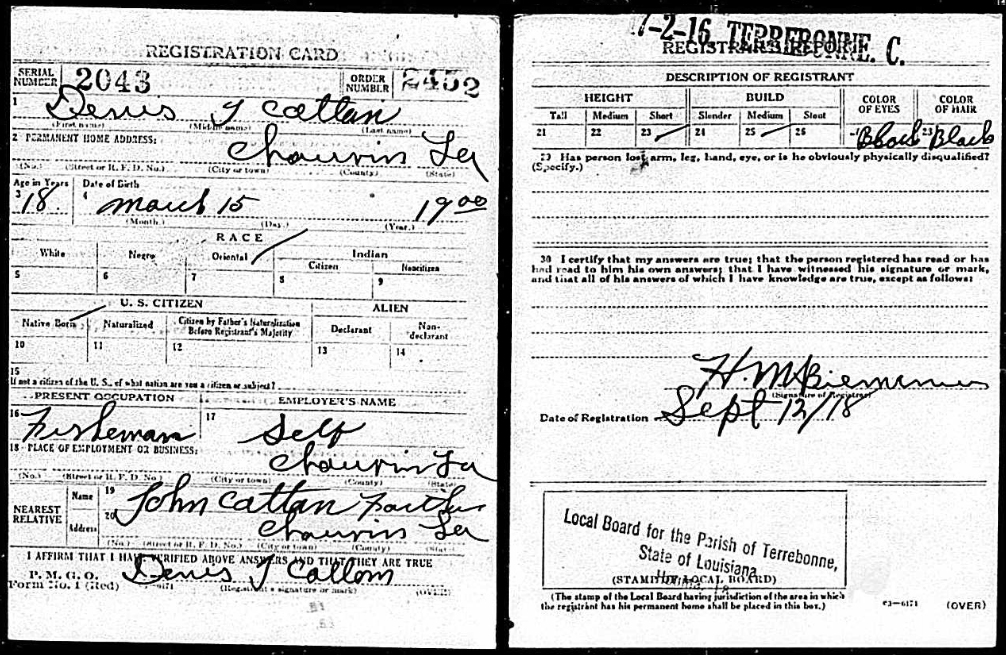 REGISTRATION CARD
SERIAL NUMBER 2043 ORDER NUMBER 2452
1 Denis J Cattan
(First name) (Middle name) (Last name)
2 PERMANENT HOME ADDRESS:
Chauvin La
(No.) (Street or R. F. D. No.) (City or town) (County) (State)
Age in Years Date of Birth
3 18 4 March 15 1900
(Month.) (Day.) (Year.)
RACE
White Negro Oriental Indian
Citizen Noncitizen
5 6 7 8 9
U. S. CITIZEN ALIEN
Native Born Naturalized Citizen by Father's Naturalization Before Registrant's Majority Declarant Non-declarant
10 11 12 13 14
15
If not a citizen of the U. S., of what nation are you a citizen or subject?
PRESENT OCCUPATION EMPLOYER'S NAME
16 Fisheman 17 Self
18 PLACE OF EMPLOYMENT OR BUSINESS:
Chauvin La
(No.) (Street or R. F. D. No.) (City or town) (County) (State)
NEAREST RELATIVE Name 19 John Cattan
Address 20 Chauvin La
(No.) (Street or R. F. D. No.) (City or town) (County) (State)
I AFFIRM THAT I HAVE VERIFIED ABOVE ANSWERS AND THAT THEY ARE TRUE
P. M. G. O.
Form No. 1 (Red) Denis J Cattom
(Registrant's signature or mark) (OVER)
17-2-16 TERREBONNE. C.
REGISTRAR'S REPORT
DESCRIPTION OF REGISTRANT
HEIGHT BUILD COLOR OF EYES COLOR OF HAIR
Tall Medium Short Slender Medium Stout
21 22 23 24 25 26 Black 28 Black
29 Has person lost arm, leg, hand, eye, or is he obviously physically disqualified?
(Specify.)
30 I certify that my answers are true; that the person registered has read or has
had read to him his own answers; that I have witnessed his signature or mark,
and that all of his answers of which I have knowledge are true, except as follows:
(Signature of Registrar)
Date of Registration Sept 12/18
Local Board for the Parish of Terrebonne,
State of Louisiana
(STAMP OF LOCAL BOARD)
(The stamp of the Local Board having jurisdiction of the area in which
the registrant has his permanent home shall be placed in this box.)
03—6171 (OVER)